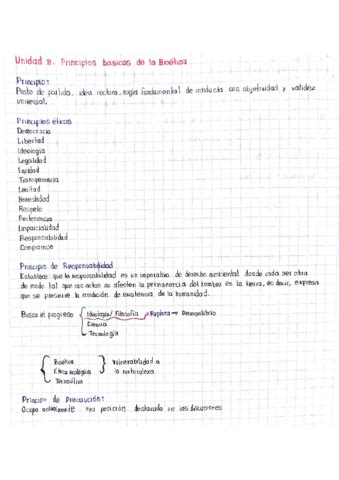 Unidad II. Principios básicos de la Bioética
Principio:
Punto de partida, idea rectora, regla fundamental de conducta con objetividad y validez
universal.
Principios éticos
Democracia
Libertad
Ideología
Legalidad
Equidad
Transparencia
Lealtad
Honestidad
Respeto
Pertenencia
Imparcialidad
Responsabilidad
Compromiso
Principio de Responsabilidad
Establece que la responsabilidad es un imperativo de derecho ambiental donde cada ser obra
de modo tal que sus actos no afecten la permanencia del hombre en la tierra, es decir, expresa
que se preserve la condición de existencia de la humanidad.
Busca el progreso { Ideología/Filosofía → Ruptura → Desequilibrio
Ciencia
Tecnología
Bioética
Ética ecológica } Vulnerabilidad a
Tecnoética la naturaleza
Principio de Precaución:
Ocupa actualmente una posición destacada en las discusiones